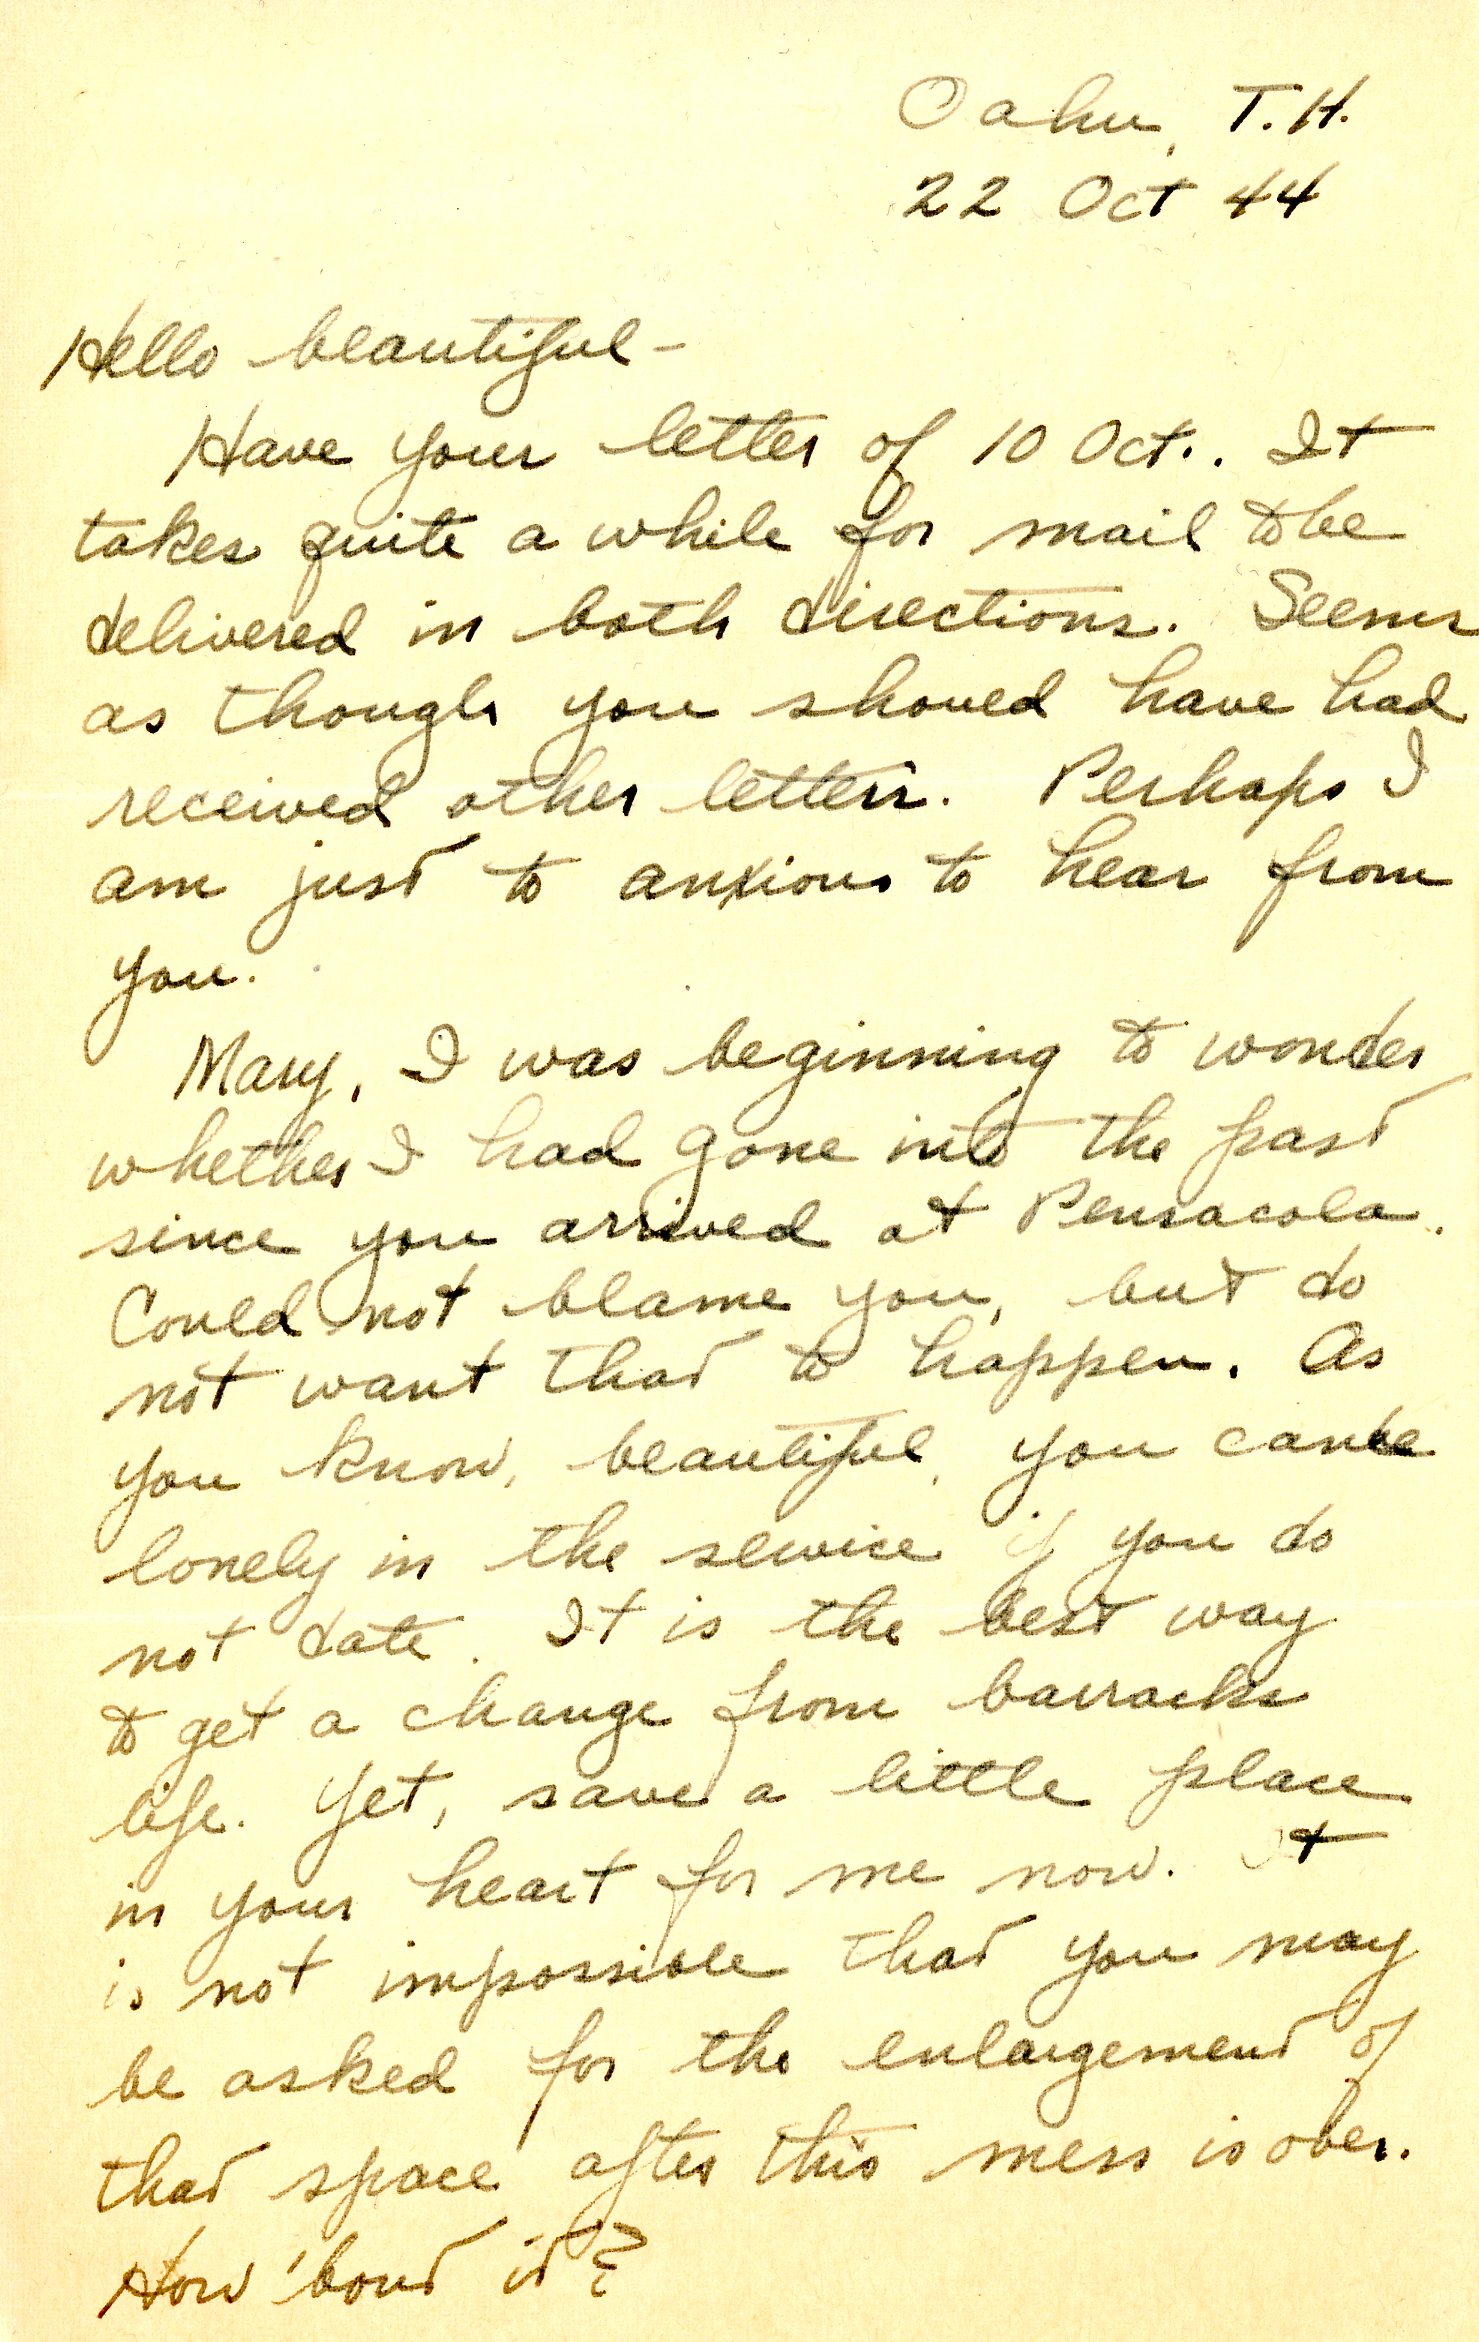 Oahu, T.H.
22 Oct 44
Hello beautiful-
Have your letter of 10 Oct.. It
takes quite a while for mail to be
delivered in both directions. Seems
as though you shoued have had
received other letters. Perhaps I
am just to anxious to hear from
you.
Mary, I was beginning to wonder
whether I had gone into the past
since you arrived at Pensacola.
Could not blame you, but do
not want that to happen. As
you know, beautiful, you can be
lonely in the service if you do
not date. It is the best way
to get a change from barracks
life. Yet, save a little place
in your heart for me now. It
is not impossible that you may
be asked for the enlargement of
that space after this mess is over.
How 'bout it?